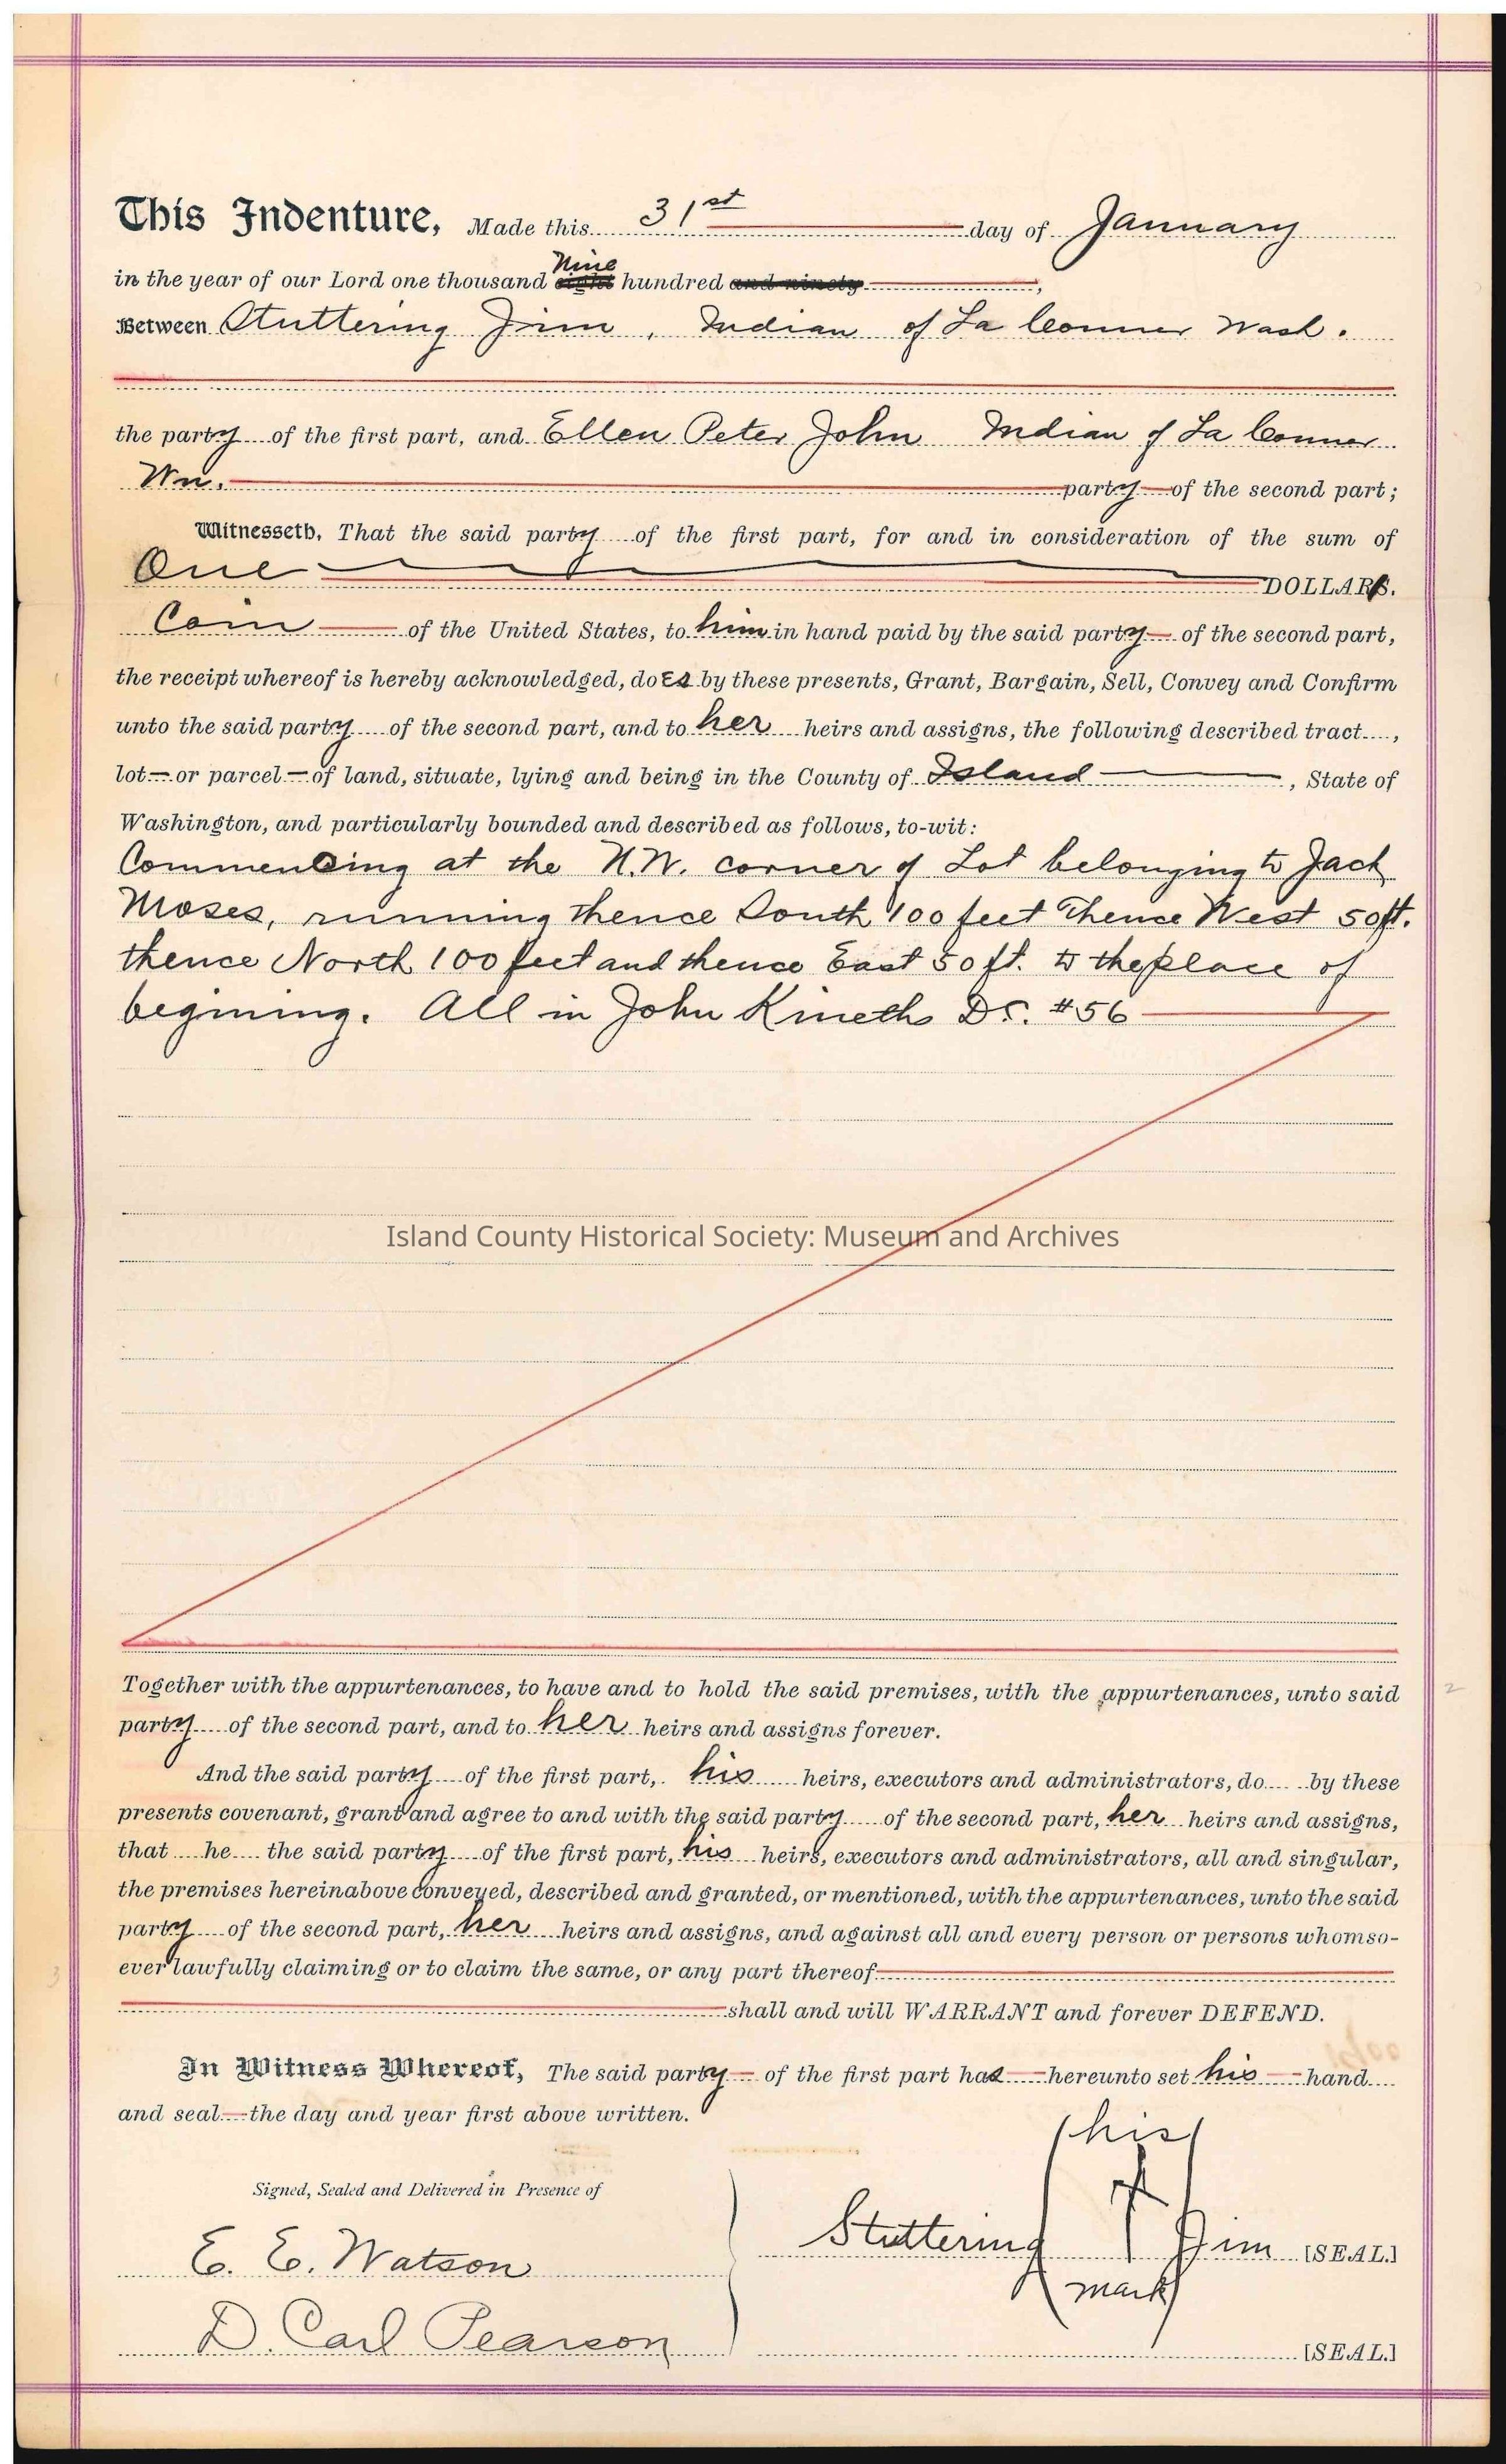 This Indenture, Made this 31st day of January
in the year of our Lord one thousand Nine eight hundred and ninety,
Between Stuttering Jim, Indian of La Conner Wash.
the party of the first part, and Ellen Peter John Indian of La Conner
Wn. party of the second part;
Witnesseth, That the said party of the first part, for and in consideration of the sum of
One DOLLARS.
Coin of the United States, to him in hand paid by the said party of the second part,
the receipt whereof is hereby acknowledged, does by these presents, Grant, Bargain, Sell, Convey and Confirm
unto the said party of the second part, and to her heirs and assigns, the following described tract,
lot or parcel of land, situate, lying and being in the County of Island, State of
Washington, and particularly bounded and described as follows, to-wit:
Commencing at the N.W. corner of Lot belonging to Jack
Moses, running thence South 100 feet Thence West 50 ft.
thence North 100 feet and thence East 50 ft. to the place of
begining. All in John Kineths D.C. #56
Island County Historical Society: Museum and Archives
Together with the appurtenances, to have and to hold the said premises, with the appurtenances, unto said
party of the second part, and to her heirs and assigns forever.
And the said party of the first part, his heirs, executors and administrators, do by these
presents covenant, grant and agree to and with the said party of the second part, her heirs and assigns,
that he the said party of the first part, his heirs, executors and administrators, all and singular,
the premises hereinabove conveyed, described and granted, or mentioned, with the appurtenances, unto the said
party of the second part, her heirs and assigns, and against all and every person or persons whomso-
ever lawfully claiming or to claim the same, or any part thereof
shall and will WARRANT and forever DEFEND.
In Witness Whereof, The said party of the first part has hereunto set his hand
and seal the day and year first above written.
his
Signed, Sealed and Delivered in Presence of
Stuttering Jim [SEAL.]
E. E. Watson
mark
D. Carl Pearson
[SEAL.]